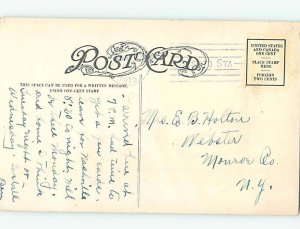 POST CARD
THIS SPACE CAN BE USED FOR A WRITTEN MESSAGE,
USING ONE-CENT STAMP.
UNITED STATES
AND CANADA
ONE CENT
PLACE STAMP
HERE
FOREIGN
TWO CENTS
STA
Arrived here at
7 P.M. had time to
get a few cards.
leave for Nashville
8:30 to night. Will
be Monday.
and some
Tuesday night or
Wednesday.
E. B. Holton
Webster
Monroe Co.
N.Y.